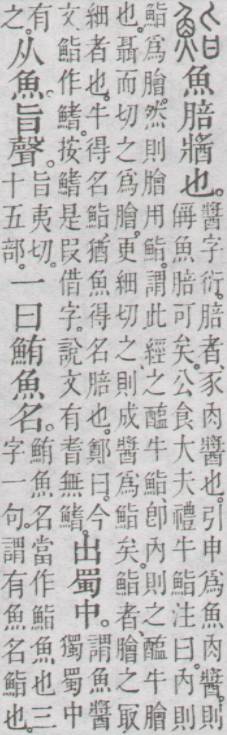 鮨 魚䏽醬也。
醬字衍。䏽者、豕肉醬也。引申爲魚肉醬。則
偁魚䏽可矣。公食大夫禮牛鮨注曰。內則
鮨爲膾。然則膾用鮨。謂此經之醢牛鮨、卽內則之醢牛膾
也。聶而切之爲膾。更細切之、則成醬爲鮨矣。鮨者、膾之㝡
細者也。牛得名鮨、猶魚得名䏽也。鄭曰。今
文鮨作鰭。按鰭是叚借字。說文有耆無鰭。
出蜀中。
謂魚醬
獨蜀中
有
之。
从魚。旨聲。
旨夷切。
十五部。
一曰鮪魚名。
鮪魚名當作鮨魚也三
字一句。謂有魚名鮨也。